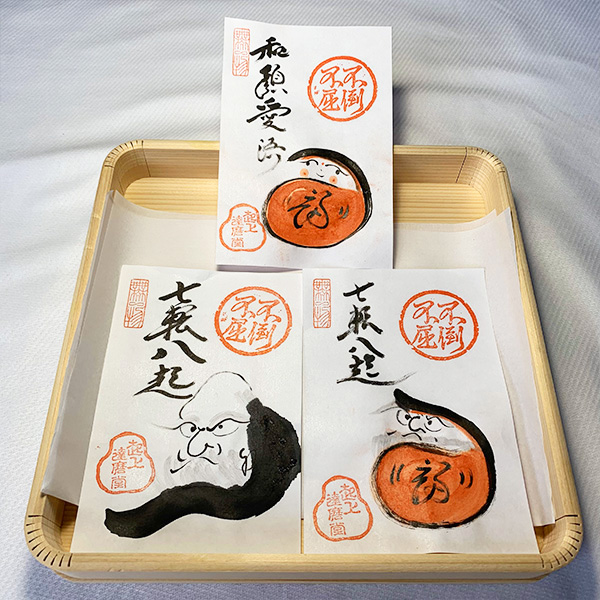 和顔愛語
不倒
不屈
起上
達磨堂
七転八起
不倒
不屈
起上
達磨堂
七転八起
不倒
不屈
起上
達磨堂